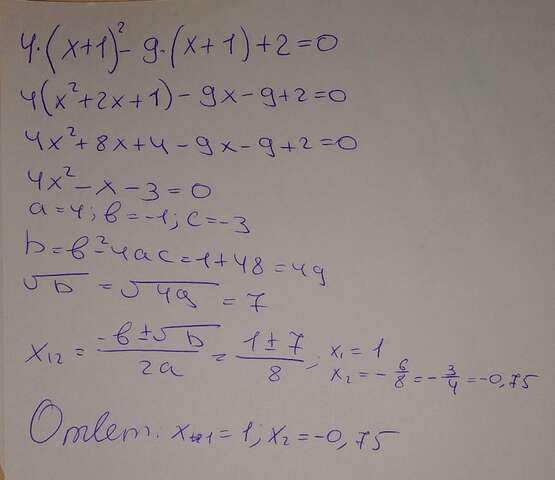 4·(x+1)² - 9·(x+1)+2=0
4(x²+2x+1)-9x-9+2=0
4x²+8x+4-9x-9+2=0
4x²-x-3=0
a=4; b=-1; c=-3
D=b²-4ac=1+48=49
√D = √49 = 7
x₁₂ = (-b±√D)/2a = (1±7)/8; x₁=1
x₂=-6/8=-3/4=-0,75
Ответ: x₁=1; x₂=-0,75